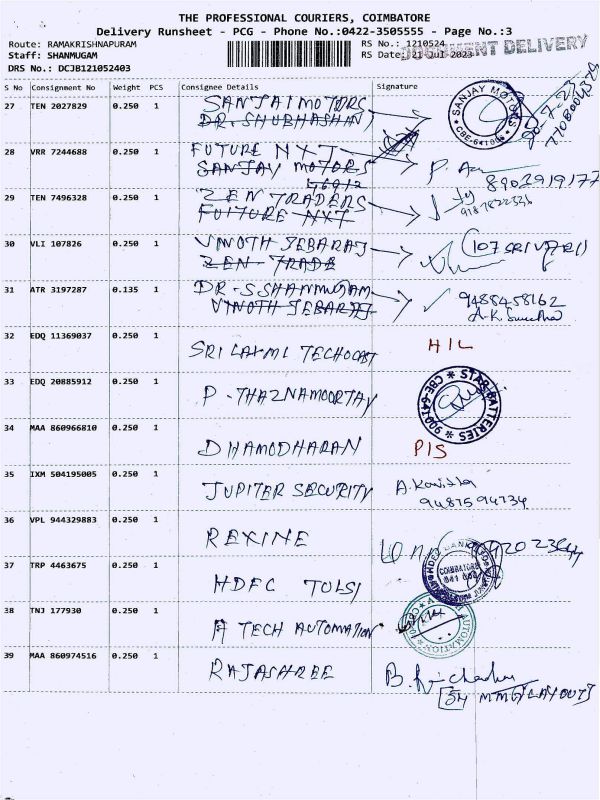 THE PROFESSIONAL COURIERS, COIMBATORE
Delivery Runsheet - PCG - Phone No.:0422-3505555 - Page No.:3
Route: RAMAKRISHNAPURAM
Staff: SHANMUGAM
DRS No.: DCJB121052403
RS No.: 1210524
RS Date: 21-Jul-2023
DELIVERY
S No Consignment No Weight PCS Consignee Details Signature
27 TEN 2027829 0.250 1 SANJAI MOTORS
DR. SHUBHASHANJ
SANJAY MOTORS
* CBE-641006 *
20-7-23
28 VRR 7244688 0.250 1 FUTURE NXT
SANJAY MOTORS
8903919177
29 TEN 7496328 0.250 1 ZEN TRADERS
FUTURE NXT
30 VLI 107826 0.250 1 VINOTH JEBARAJ
ZEN TRADE
31 ATR 3197287 0.135 1 DR-S SHANMUGAM
VINOTH JEBARAJ
9488458162
32 EDQ 11369037 0.250 1 SRI LAXMI TECHOCAST HIL
33 EDQ 20885912 0.250 1 P-THAZNAMOORTAY
* STAR BATTERIES *
34 MAA 860966810 0.250 1 DHAMODHARAN PIS
35 IXM 504195005 0.250 1 JUPITER SECURITY A.Kavitha
9487594734
36 VPL 944329883 0.250 1 REXINE
37 TRP 4463675 0.250 1 HDFC TULSI
HDFC BANK LTD
COIMBATORE
38 TNJ 177930 0.250 1 A TECH AUTOMATION
AUTOMATION
39 MAA 860974516 0.250 1 RAJASHREE